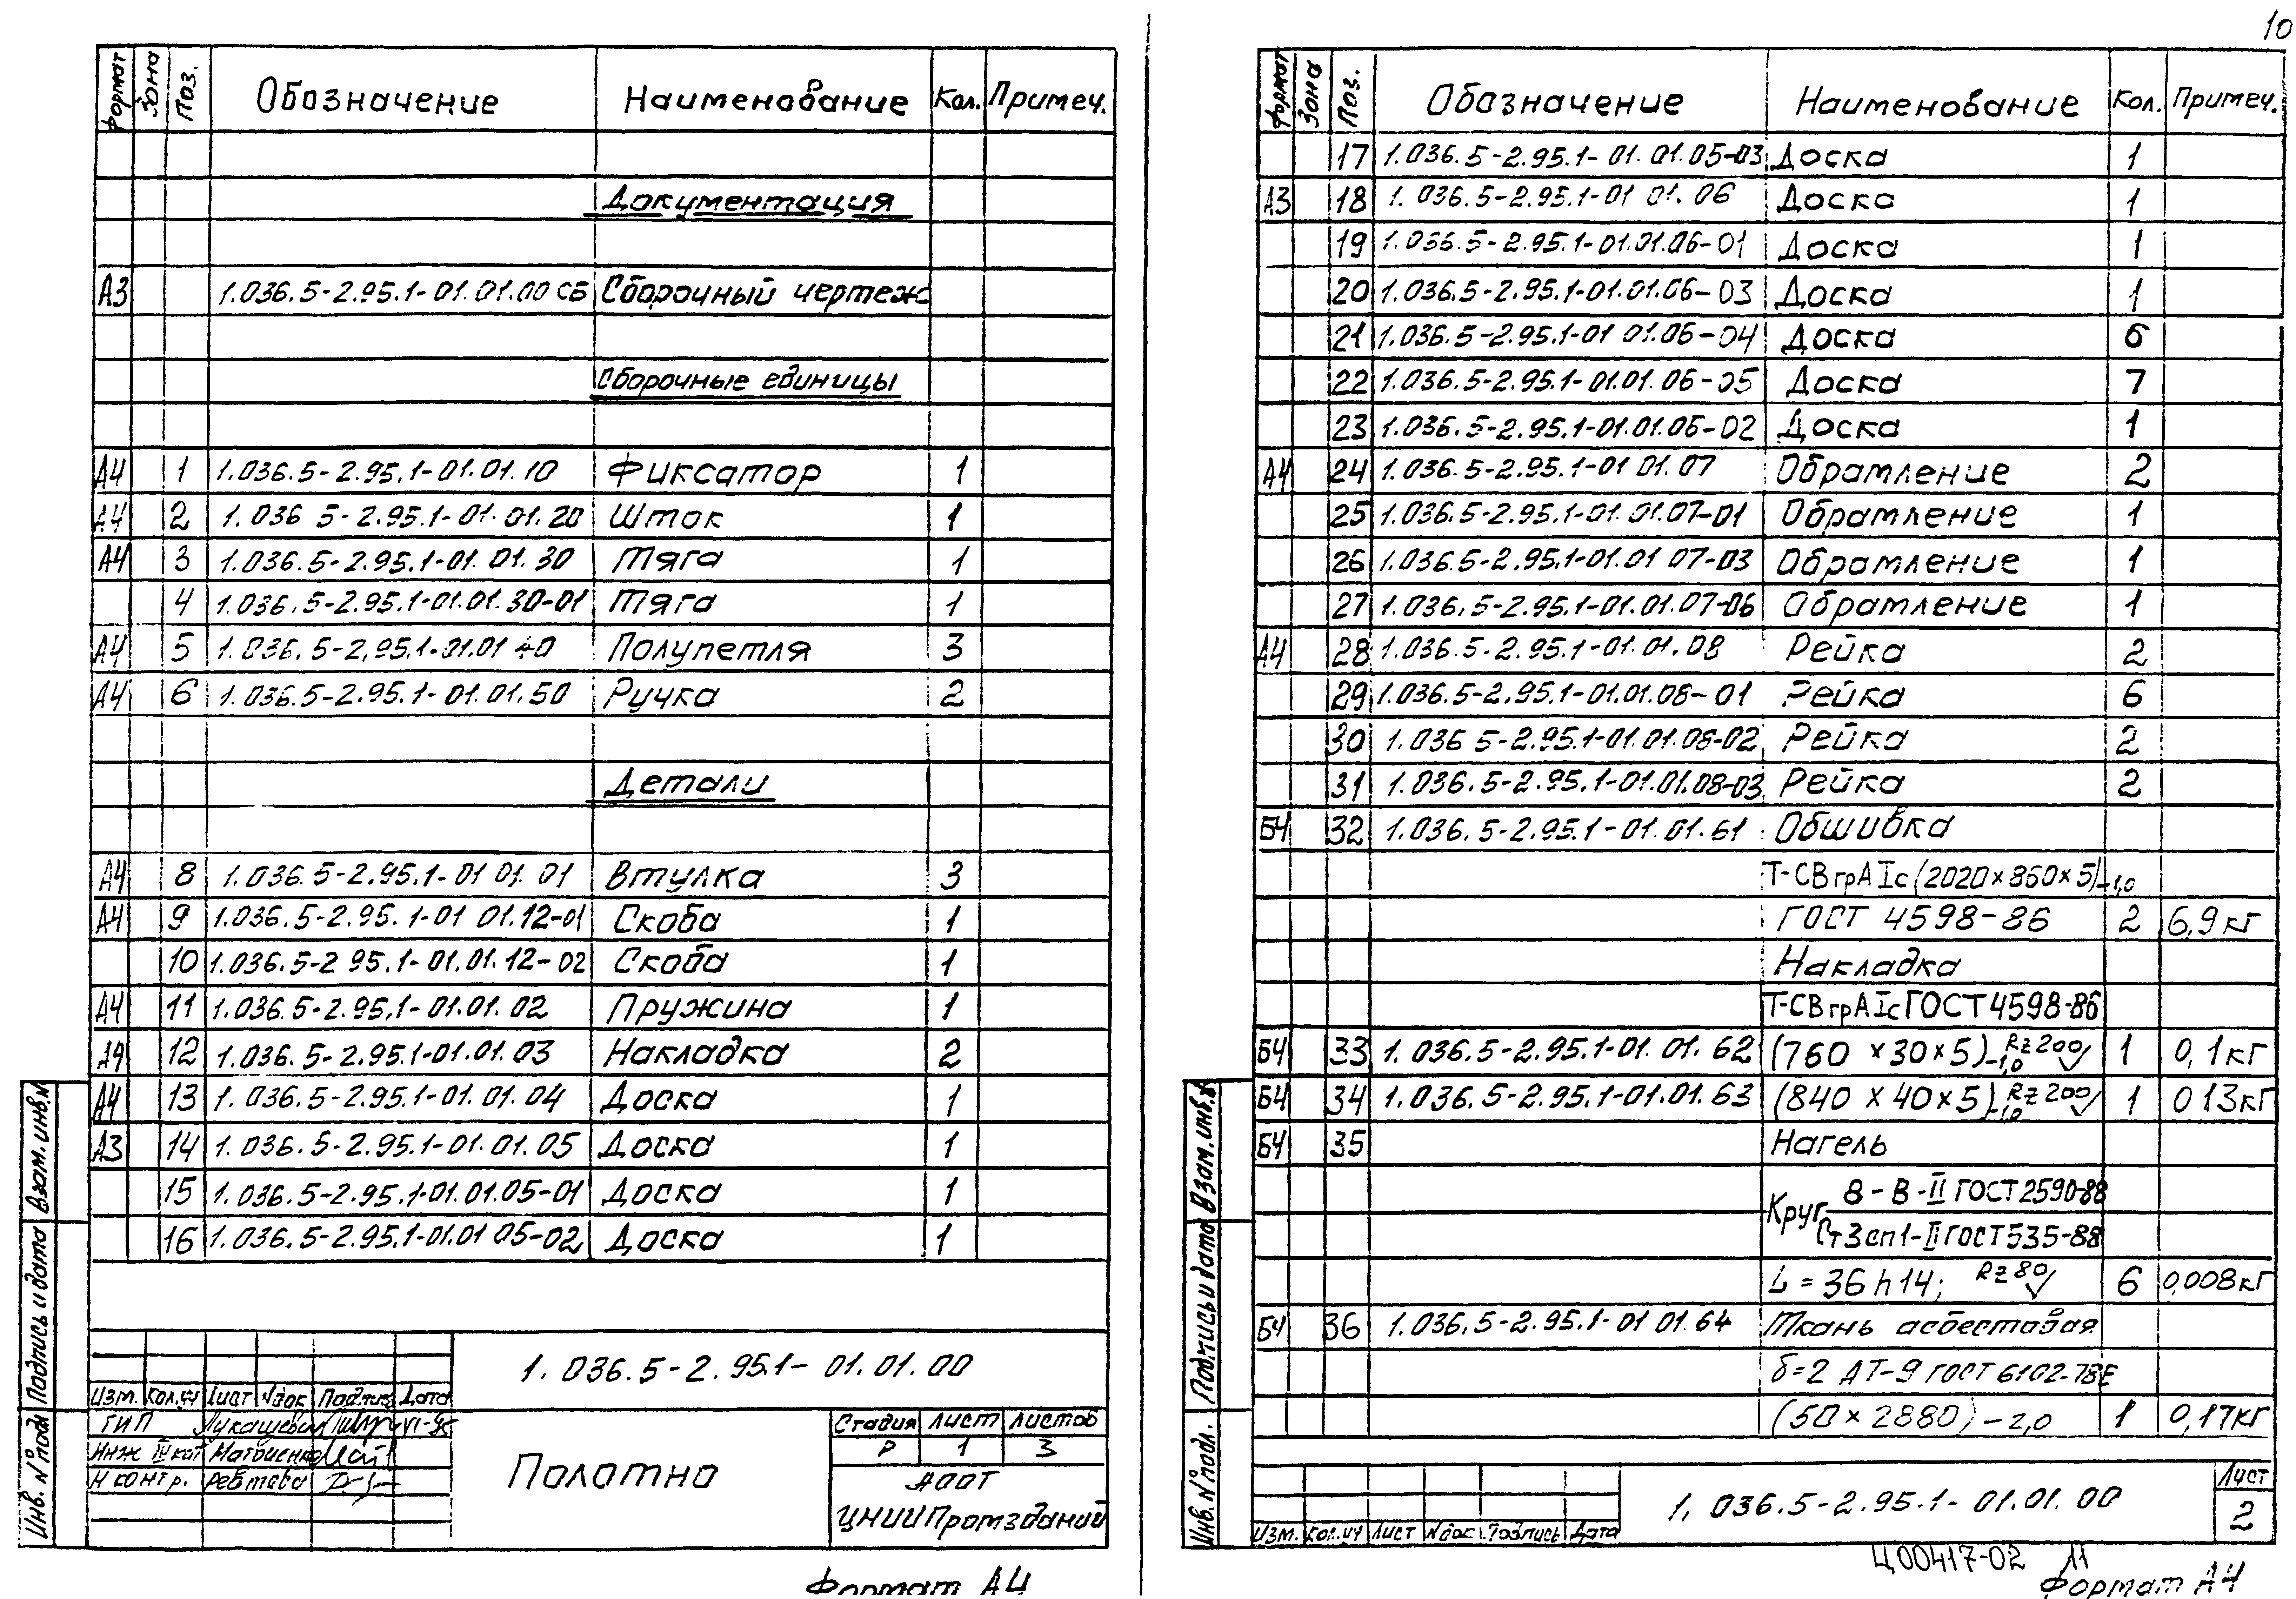 10
Формат Зона Поз. Обозначение Наименование Кол. Примеч.
Документация
А3 1.036.5-2.95.1-01.01.00 СБ Сборочный чертеж
Сборочные единицы
А4 1 1.036.5-2.95.1-01.01.10 Фиксатор 1
А4 2 1.036 5-2.95.1-01.01.20 Шток 1
А4 3 1.036.5-2.95.1-01.01.30 Тяга 1
4 1.036.5-2.95.1-01.01.30-01 Тяга 1
А4 5 1.036.5-2.95.1-01.01 40 Полупетля 3
А4 6 1.036.5-2.95.1-01.01.50 Ручка 2
Детали
А4 8 1.036.5-2.95.1-01 01.01 Втулка 3
А4 9 1.036.5-2.95.1-01 01.12-01 Скоба 1
10 1.036.5-2 95.1-01.01.12-02 Скоба 1
А4 11 1.036.5-2.95.1-01.01.02 Пружина 1
А4 12 1.036.5-2.95.1-01.01.03 Накладка 2
А4 13 1.036.5-2.95.1-01.01.04 Доска 1
А3 14 1.036.5-2.95.1-01.01.05 Доска 1
15 1.036.5-2.95.1-01.01.05-01 Доска 1
16 1.036.5-2.95.1-01.01 05-02 Доска 1
Взам. инв. №
Подпись и дата
Инв. № подл
1.036.5-2.95.1-01.01.00
Изм. Кол.уч Лист №док Подпись Дата
ГИП Лукашевич
Инж III кат Матвиенко
Н контр. Ревтова
Полотно
Стадия Лист Листов
Р 1 3
АООТ
ЦНИИПромзданий
Формат А4
Формат Зона Поз. Обозначение Наименование Кол. Примеч.
17 1.036.5-2.95.1-01.01.05-03 Доска 1
А3 18 1.036.5-2.95.1-01 01.06 Доска 1
19 1.036.5-2.95.1-01.01.06-01 Доска 1
20 1.036.5-2.95.1-01.01.06-03 Доска 1
21 1.036.5-2.95.1-01 01.06-04 Доска 6
22 1.036.5-2.95.1-01.01.06-05 Доска 7
23 1.036.5-2.95.1-01.01.06-02 Доска 1
А4 24 1.036.5-2.95.1-01 01.07 Обрамление 2
25 1.036.5-2.95.1-01.01.07-01 Обрамление 1
26 1.036.5-2.95.1-01.01 07-03 Обрамление 1
27 1.036.5-2.95.1-01.01.07-06 Обрамление 1
А4 28 1.036.5-2.95.1-01.01.08 Рейка 2
29 1.036.5-2.95.1-01.01.08-01 Рейка 6
30 1.036 5-2.95.1-01.01.08-02 Рейка 2
31 1.036.5-2.95.1-01.01.08-03 Рейка 2
БЧ 32 1.036.5-2.95.1-01.01.61 Обшивка
Т-СВгрА Iс (2020×860×5)-1,0
ГОСТ 4598-86 2 6,9кг
Накладка
Т-СВгрАIс ГОСТ 4598-86
БЧ 33 1.036.5-2.95.1-01.01.62 (760×30×5)-1,0 Rz200 1 0,1кг
БЧ 34 1.036.5-2.95.1-01.01.63 (840×40×5)-1,0 Rz200 1 0 13кг
БЧ 35 Нагель
Круг 8-В-II ГОСТ2590-88
Ст3сп1-II ГОСТ535-88
L=36h14; Rz80 6 0,008кг
БЧ 36 1.036.5-2.95.1-01 01.64 Ткань асбестовая
δ=2 АТ-9 ГОСТ 6102-78Е
(50×2880)-2,0 1 0,17кг
Взам. инв. №
Подпись и дата
Инв. № подл.
1.036.5-2.95.1-01.01.00
Лист
2
Изм. Кол.уч Лист №док. Подпись Дата
Ц00417-02 11
Формат А4